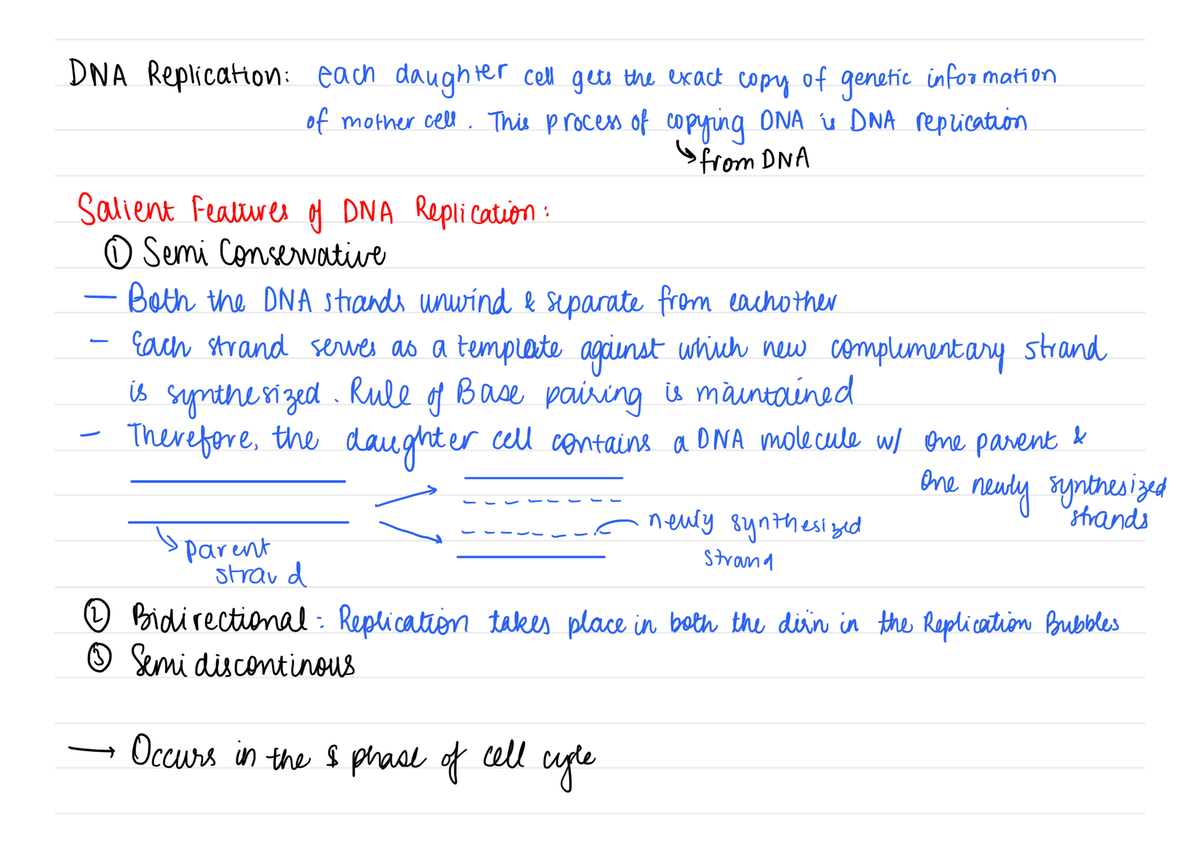 DNA Replication: each daughter cell gets the exact copy of genetic information
of mother cell. This process of copying DNA is DNA replication
↳ from DNA
Salient Features of DNA Replication:
① Semi Conservative
— Both the DNA strands unwind & separate from eachother
— Each strand serves as a template against which new complementary strand
is synthesized. Rule of Base pairing is maintained
— Therefore, the daughter cell contains a DNA molecule w/ one parent &
one newly synthesized
strands
newly synthesized
strand
↳ parent
strand
② Bidirectional: Replication takes place in both the dirn in the Replication Bubbles
③ Semi discontinous
→ Occurs in the S phase of cell cycle